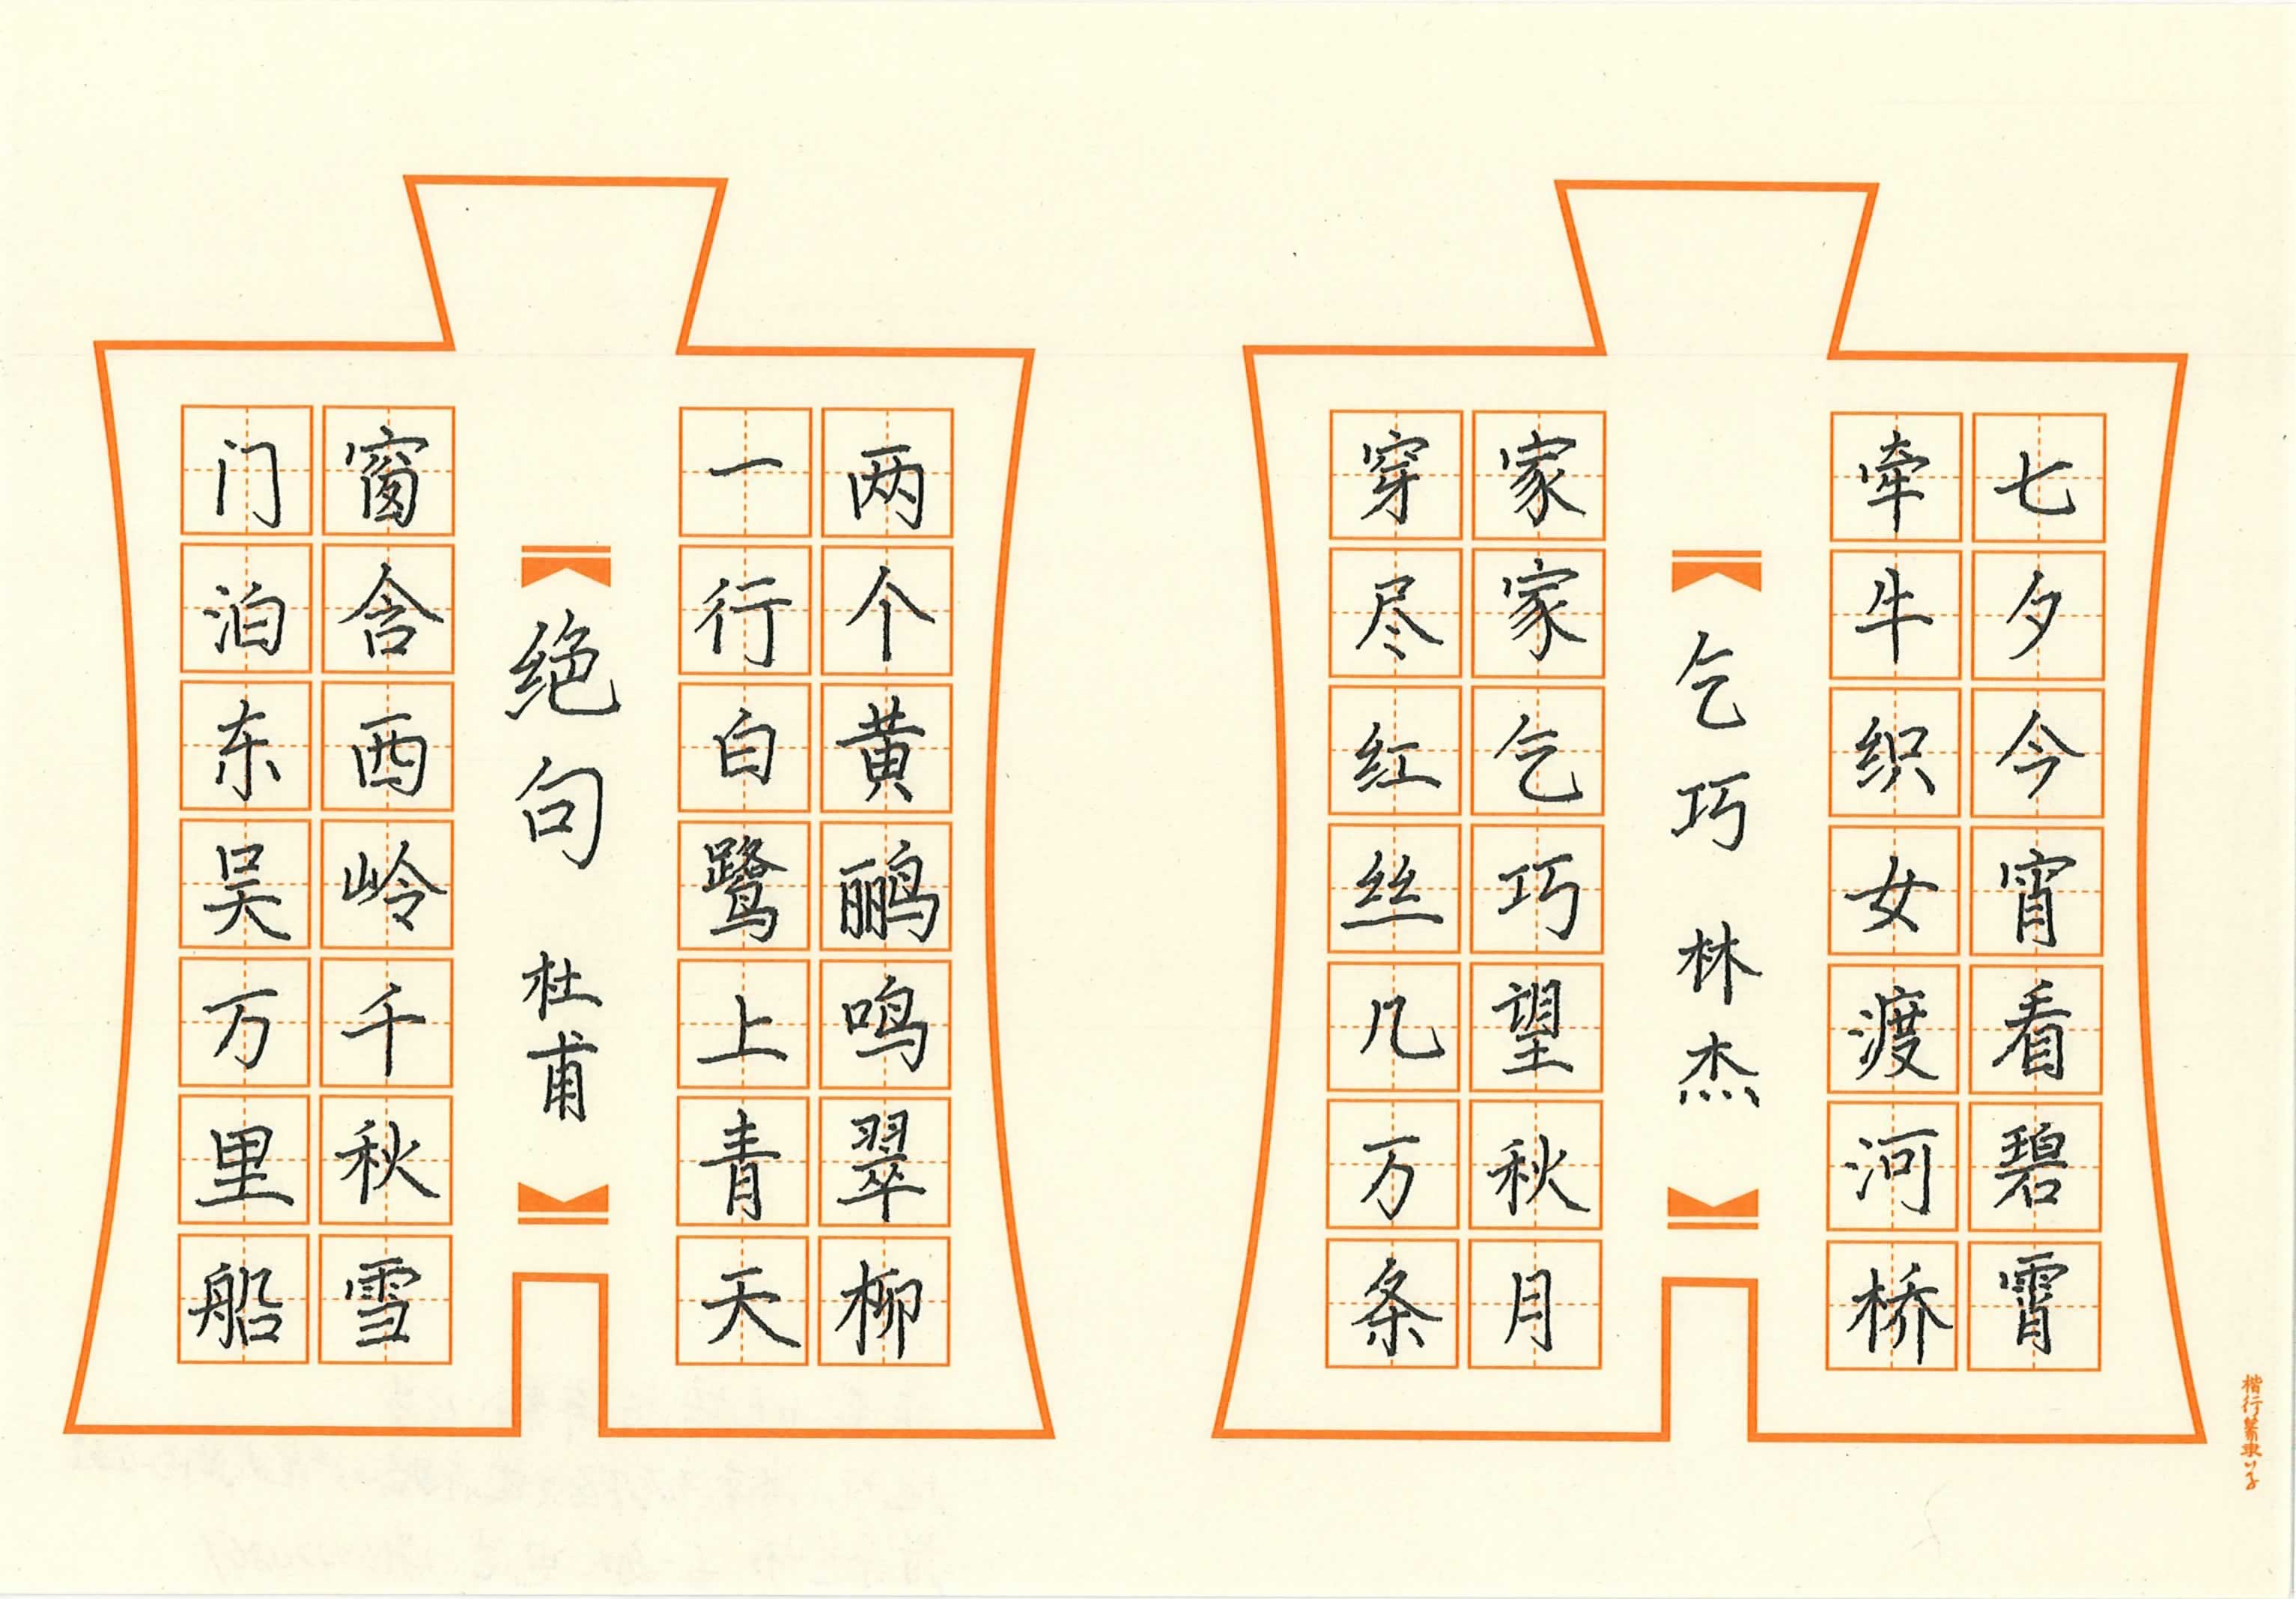 七夕今宵看碧霄
牵牛织女渡河桥
乞巧 林杰
家家乞巧望秋月
穿尽红丝几万条
两个黄鹂鸣翠柳
一行白鹭上青天
绝句 杜甫
窗含西岭千秋雪
门泊东吴万里船